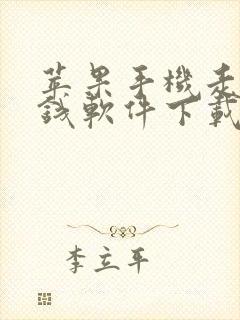 苹果手機汞
錢軟件下載
李立平